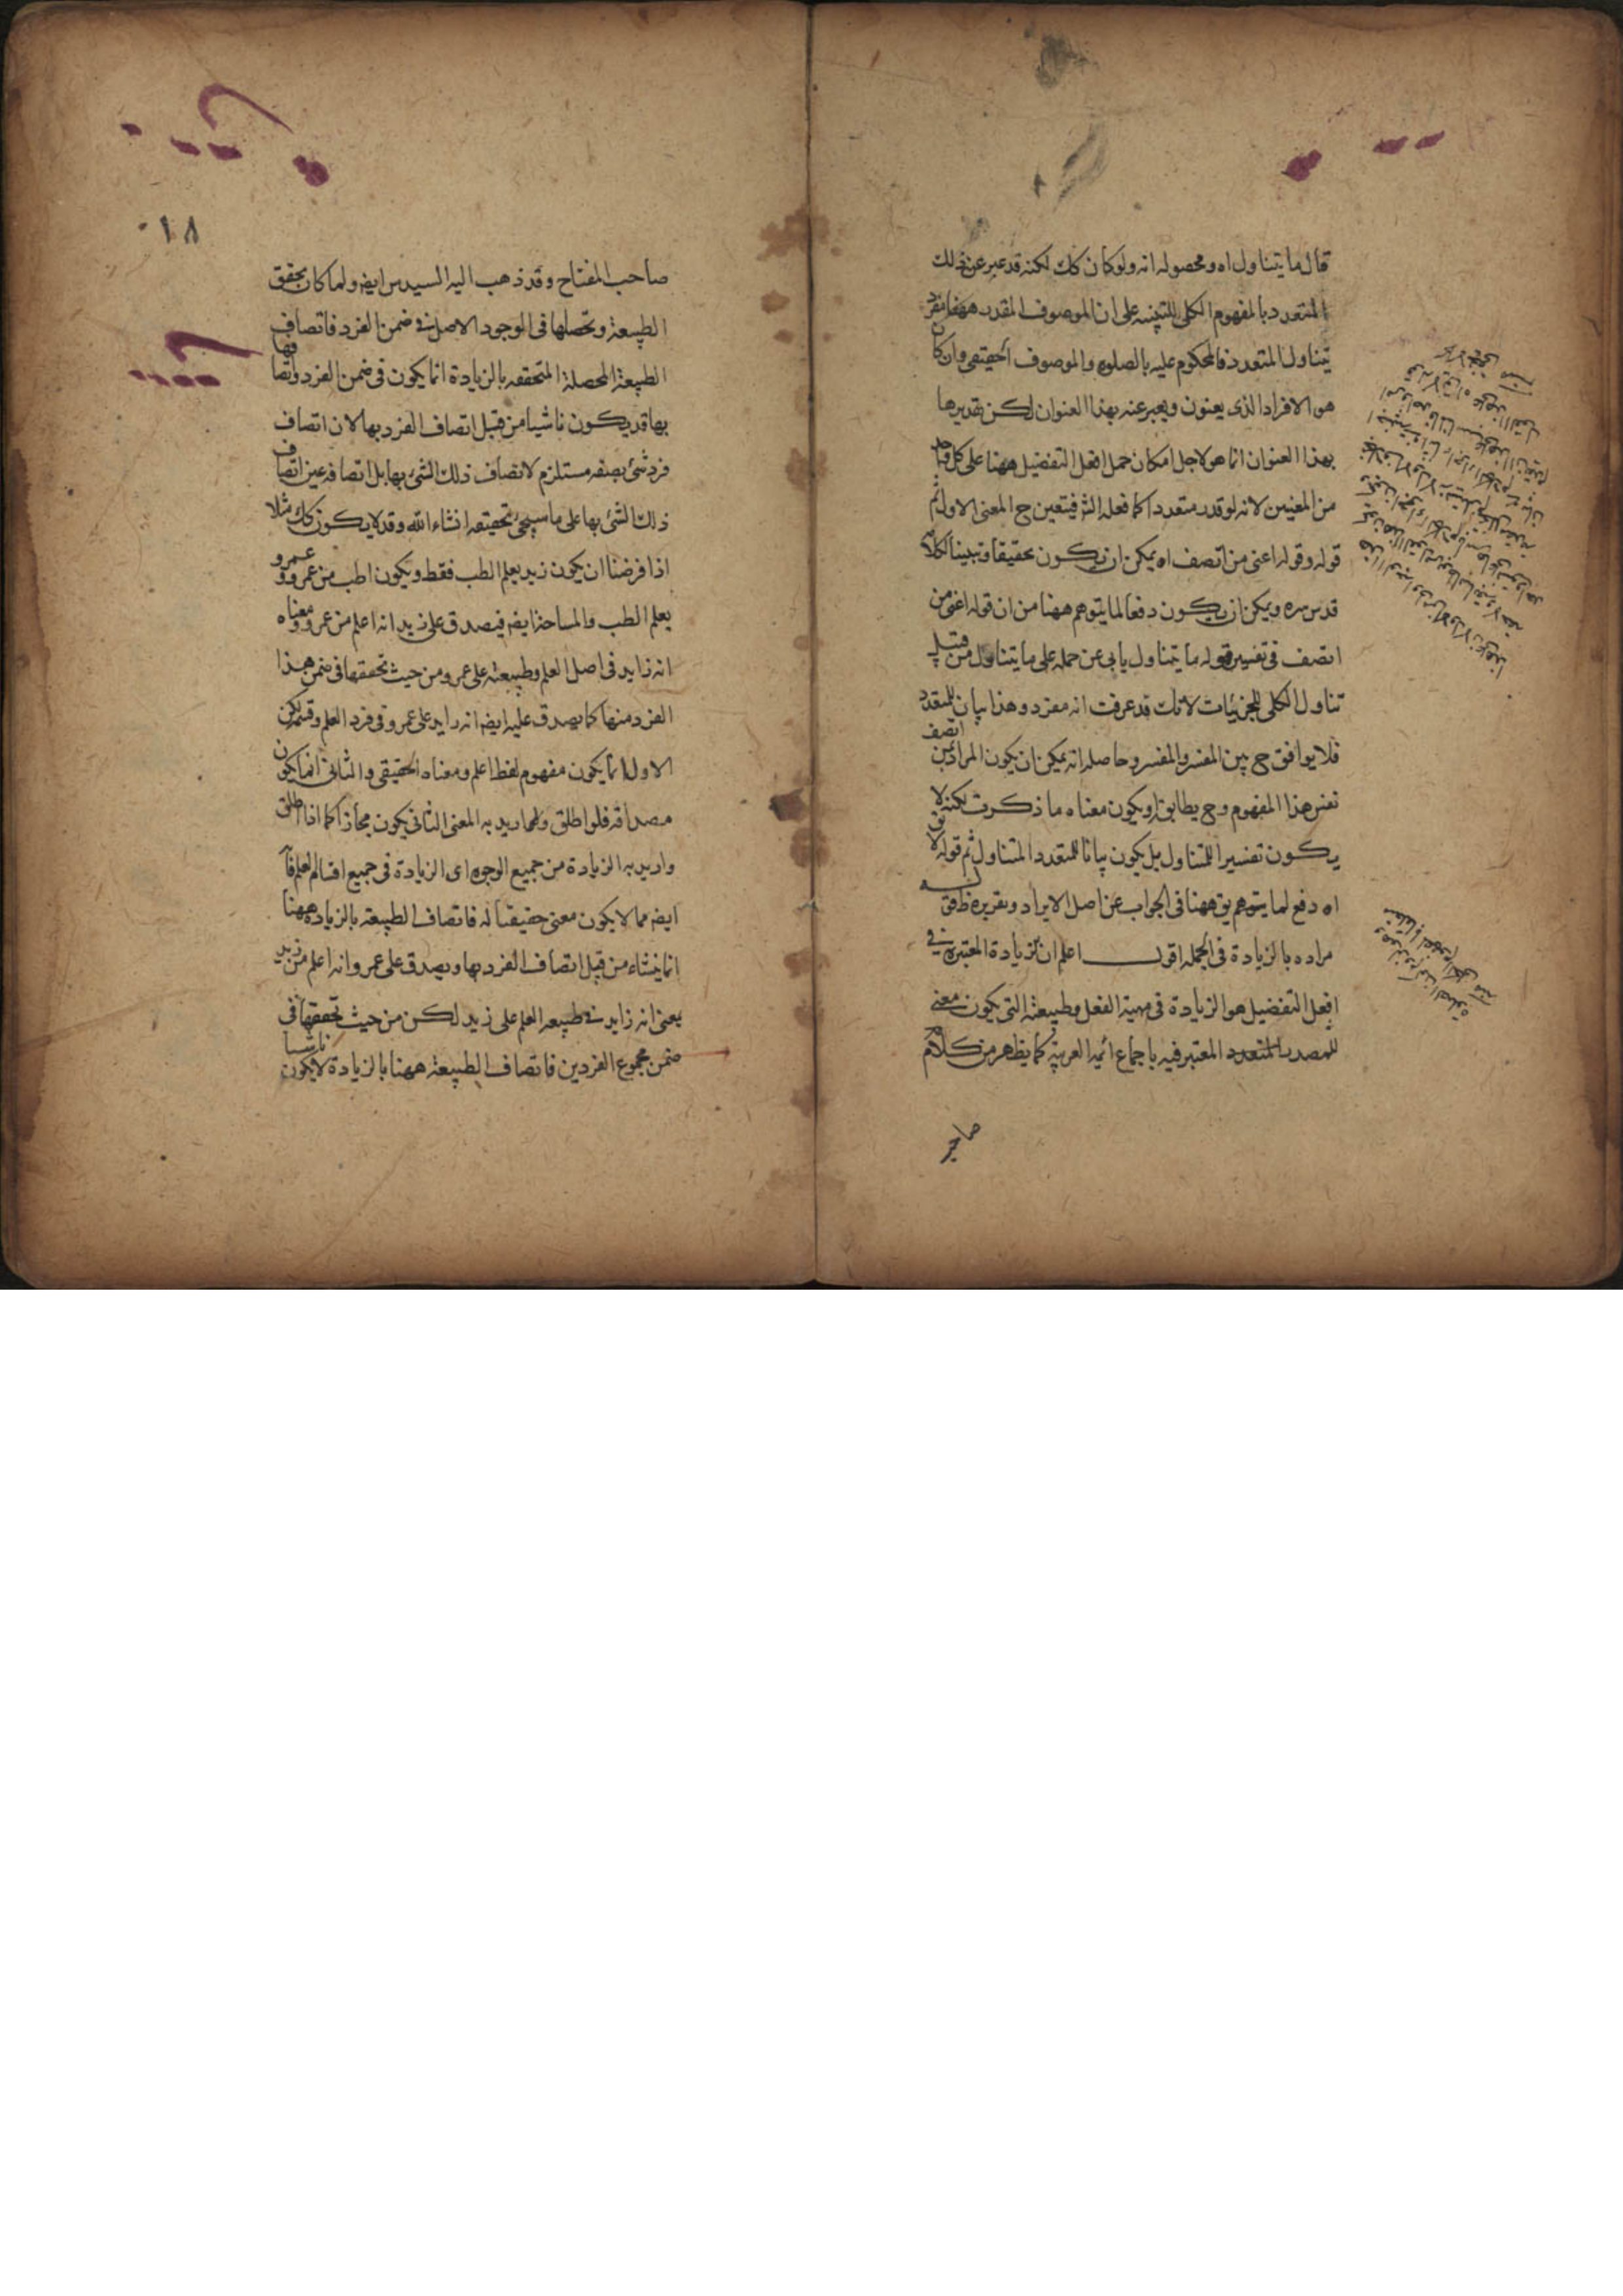 قال ما يتناول اه ومحصوله انه ولو كان كك لكنه قد عبر عن ذلك
المتعدد بالمفهوم الكلى للتنبيه على ان الموصوف المقدر ههنا مفرد
يتناول المتعدد فالمحكوم عليه بالصلوه والموصوف الحقيقى وان كان
هو الافراد الذى يعنون ويعبر عنه بهذا العنوان لكن تقديرها
بهذا العنوان انما هو لاجل امكان حمل افعل التفضيل ههنا على كل واحد
من المعنيين لانه لو قدر متعددا كما فعله الش فيتعين ح المعنى الاول ثم
قوله وقوله اعنى من اتصف اه يمكن ان يكون تحقيقا وتبيينا لكلام
قدس سره ويمكن ان يكون دفعا لما يتوهم ههنا من ان قوله اعنى من
اتصف فى تفسير قوله ما يتناول يابى عن حمله على ما يتناول من قبيل
تناول الكلى للجزئيات لانك قد عرفت انه مفرد وهذا بيان للمتعدد
فلا يوافق ح بين المفسر والمفسر وحاصله انه يمكن ان يكون المراد بمن اتصف
نفس هذا المفهوم وح يطابق او يكون معناه ما ذكرت لكنه لا
يكون تفسيرا للمتناول بل يكون بيانا للمتعدد المتناول ثم قوله لا يق
اه دفع لما يتوهم يق ههنا فى الجواب عن اصل الايراد وتقريره ظ قوله
مراده بالزيادة فى الجمله اقول اعلم ان الزيادة المعتبره فى
افعل التفضيل هو الزيادة فى مهية الفعل وطبيعته التى يكون معنى
للمصدر المتعدد المعتبر فيه باجماع ائمه العربية كما يظهر من كلام
صاحب
٠١٨
صاحب المفتاح وقد ذهب اليه السيد س ايضه ولما كان تحقق
الطبيعة وتحصلها فى الوجود الاصلى فى ضمن الفرد فاتصاف
الطبيعة المحصلة المتحققه بالزيادة انما يكون فى ضمن الفرد واتصافها
بها قد يكون ناشيا من قبل اتصاف الفرد بها لان اتصاف
فرد شئ بصفه مستلزم لاتصاف ذلك الشئ بها بل اتصافه عين اتصاف
ذلك الشئ بها على ما سيجئ تحقيقه انشاء الله وقد لا يكون كك مثلا
اذا فرضنا ان يكون زيد يعلم الطب فقط ويكون اطب من عمرو وعمرو
يعلم الطب والمساحة ايضه فيصدق على زيد انه اعلم من عمرو ومعناه
انه زايد فى اصل العلم وطبيعته على عمرو من حيث تحققها فى ضمن هذا
الفرد منها كما يصدق عليه ايضه انه زايد على عمرو فى فرد العلم وقسمه لكن
الاول انما يكون مفهوم لفظ اعلم ومعناه الحقيقى والثانى انما يكون
مصداقه فلو اطلق واريد به المعنى الثانى يكون مجازا كما اذا اطلق
واريد به الزيادة من جميع الوجوه اى الزيادة فى جميع اقسام العلم فانه
ايضه مما لا يكون معنى حقيقيا له فاتصاف الطبيعة بالزيادة ههنا
انما ينشاء من قبل اتصاف الفرد بها ويصدق على عمرو انه اعلم من زيد
يعنى انه زايد فى طبيعه العلم على زيد لكن من حيث تحققها فى
ضمن مجموع الفردين فاتصاف الطبيعة ههنا بالزيادة لا يكون ناشيا